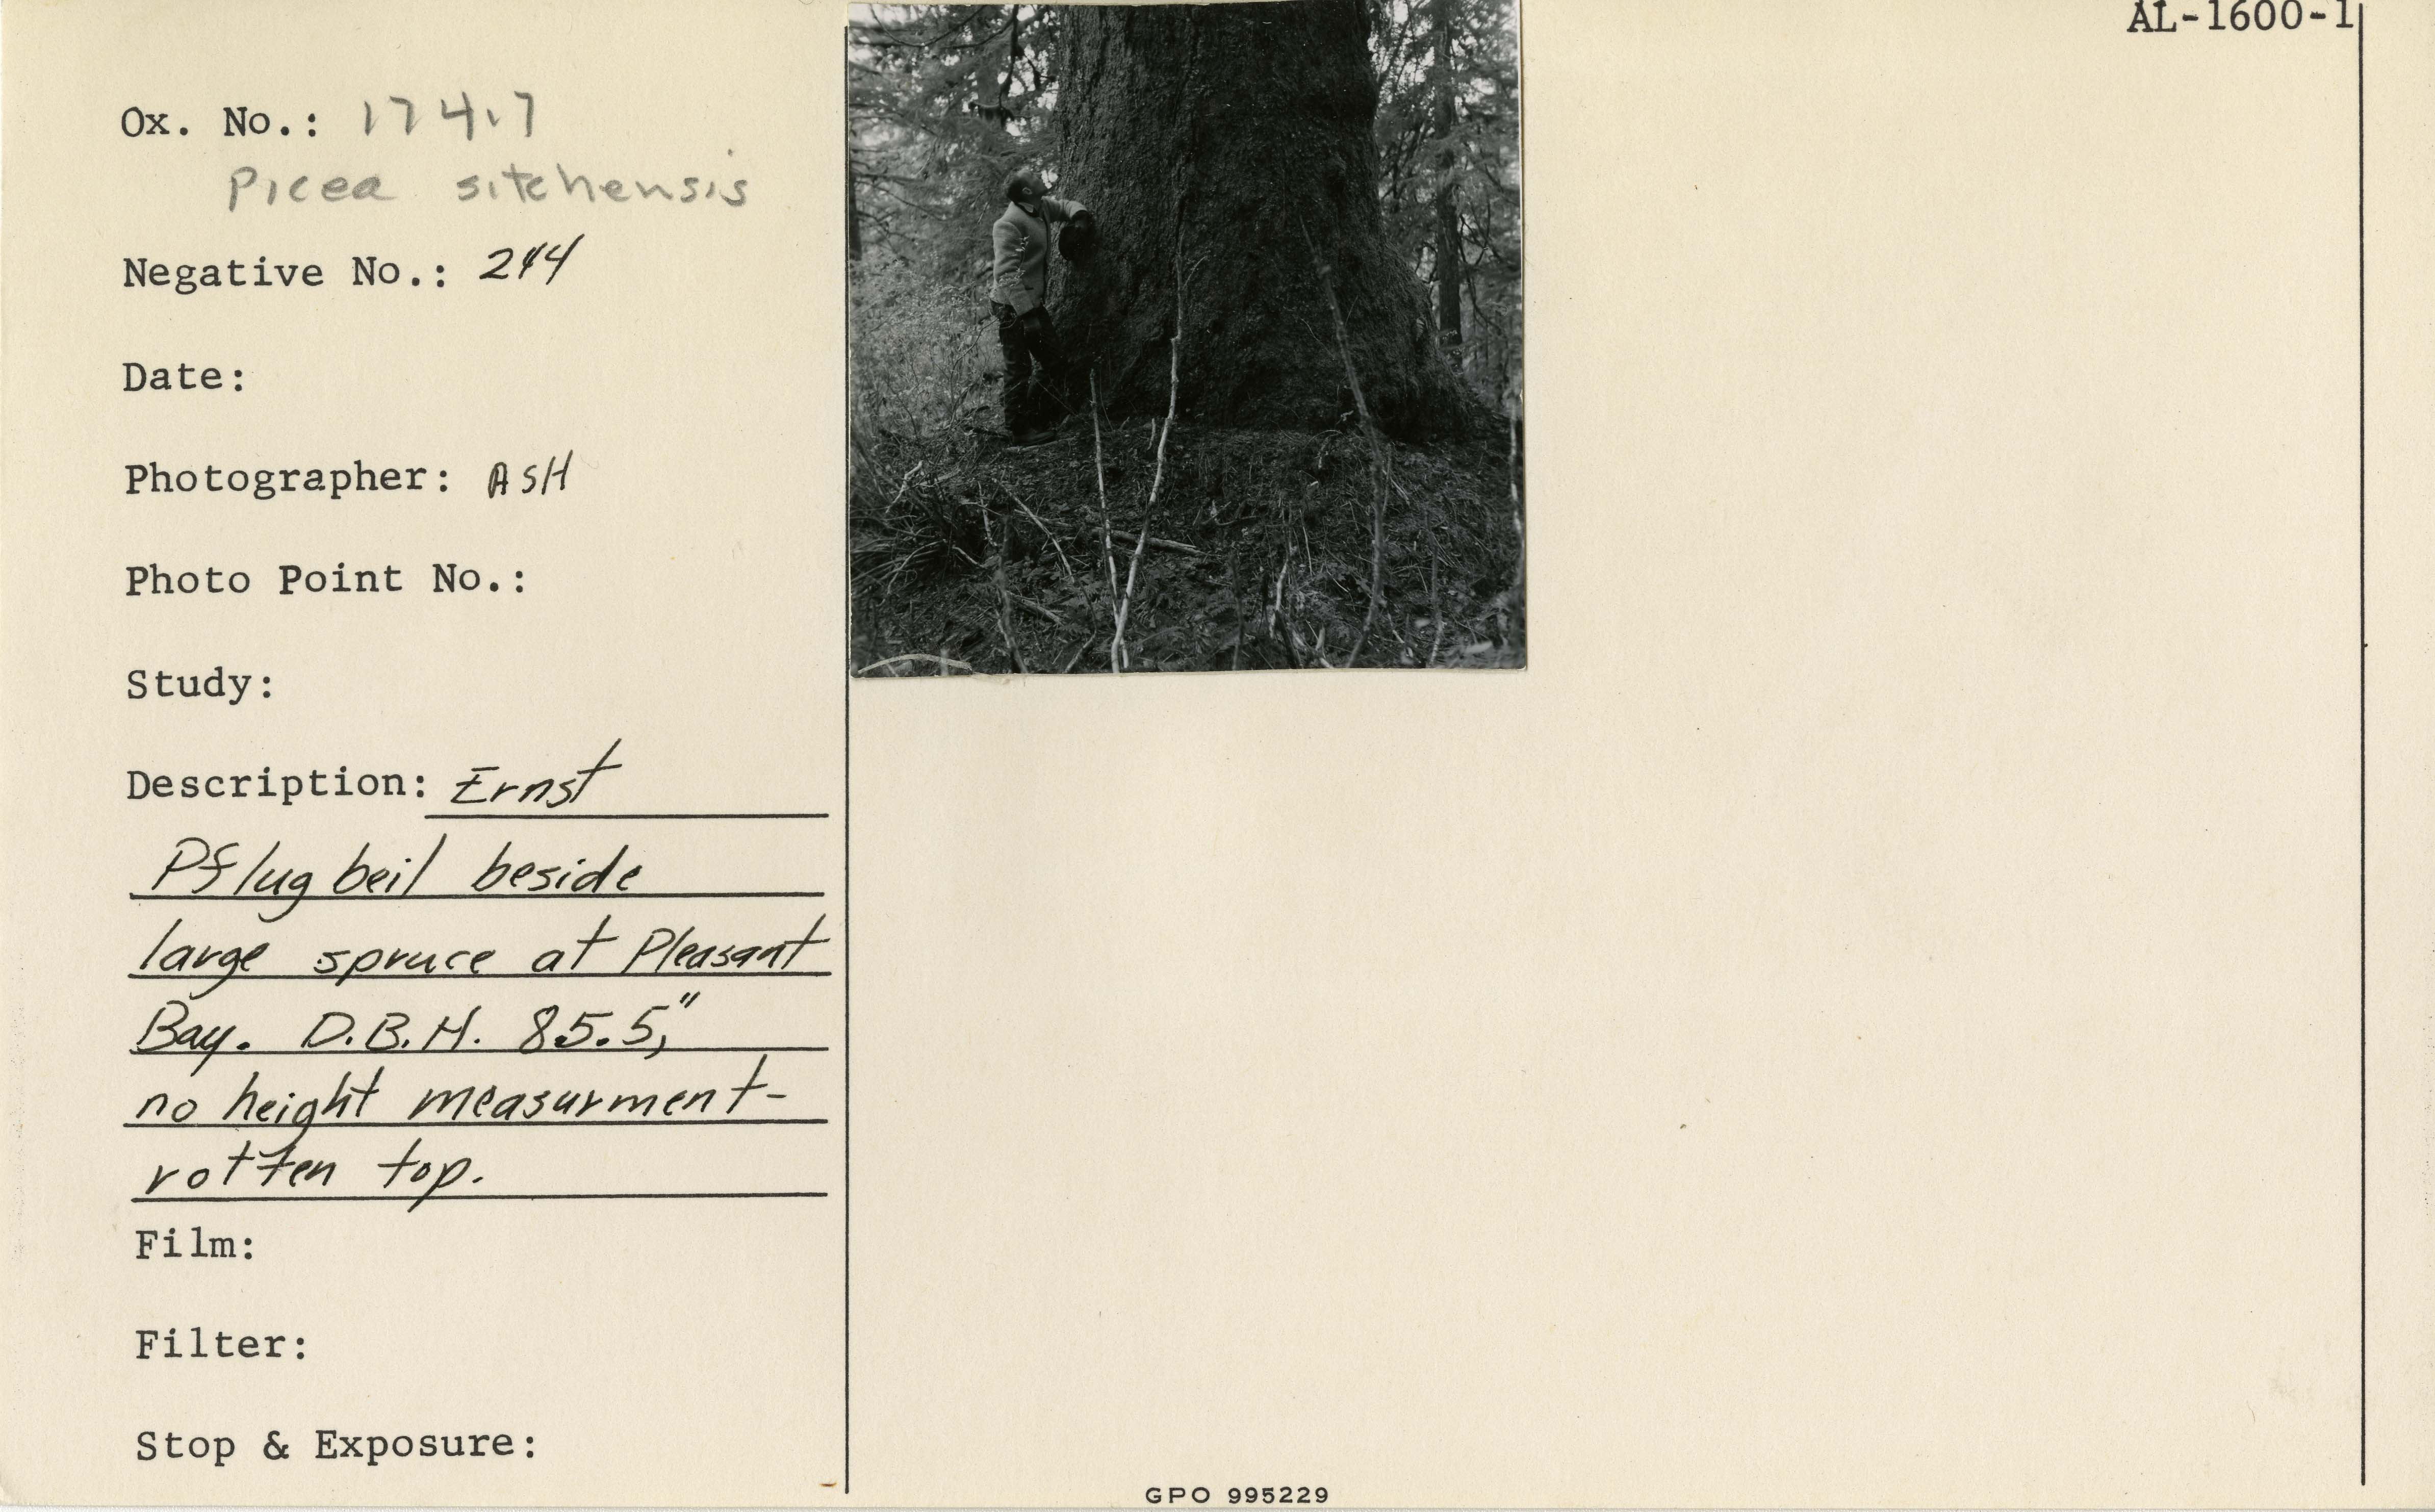 AL-1600-1
Ox. No.: 174.7
Picea sitchensis
Negative No.: 244
Date:
Photographer: ASH
Photo Point No.:
Study:
Description: Ernst
Pflugbeil beside
large spruce at Pleasant
Bay. D.B.H. 85.5,"
no height measurment-
rotten top.
Film:
Filter:
Stop & Exposure:
GPO 995229